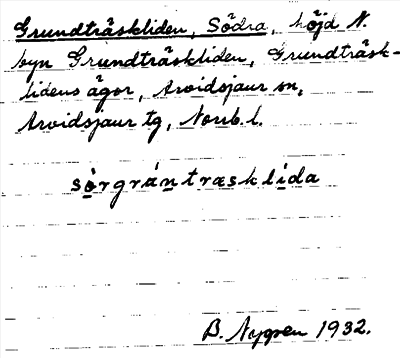 Grundträskliden, Södra, höjd N.
byn Grundträskliden, Grundträsk-
lidens ägor, Arvidsjaur sn,
Arvidsjaur tg, Norrb. l.
sọ̀rgráṇtræsklịda
B. Nygren 1932.